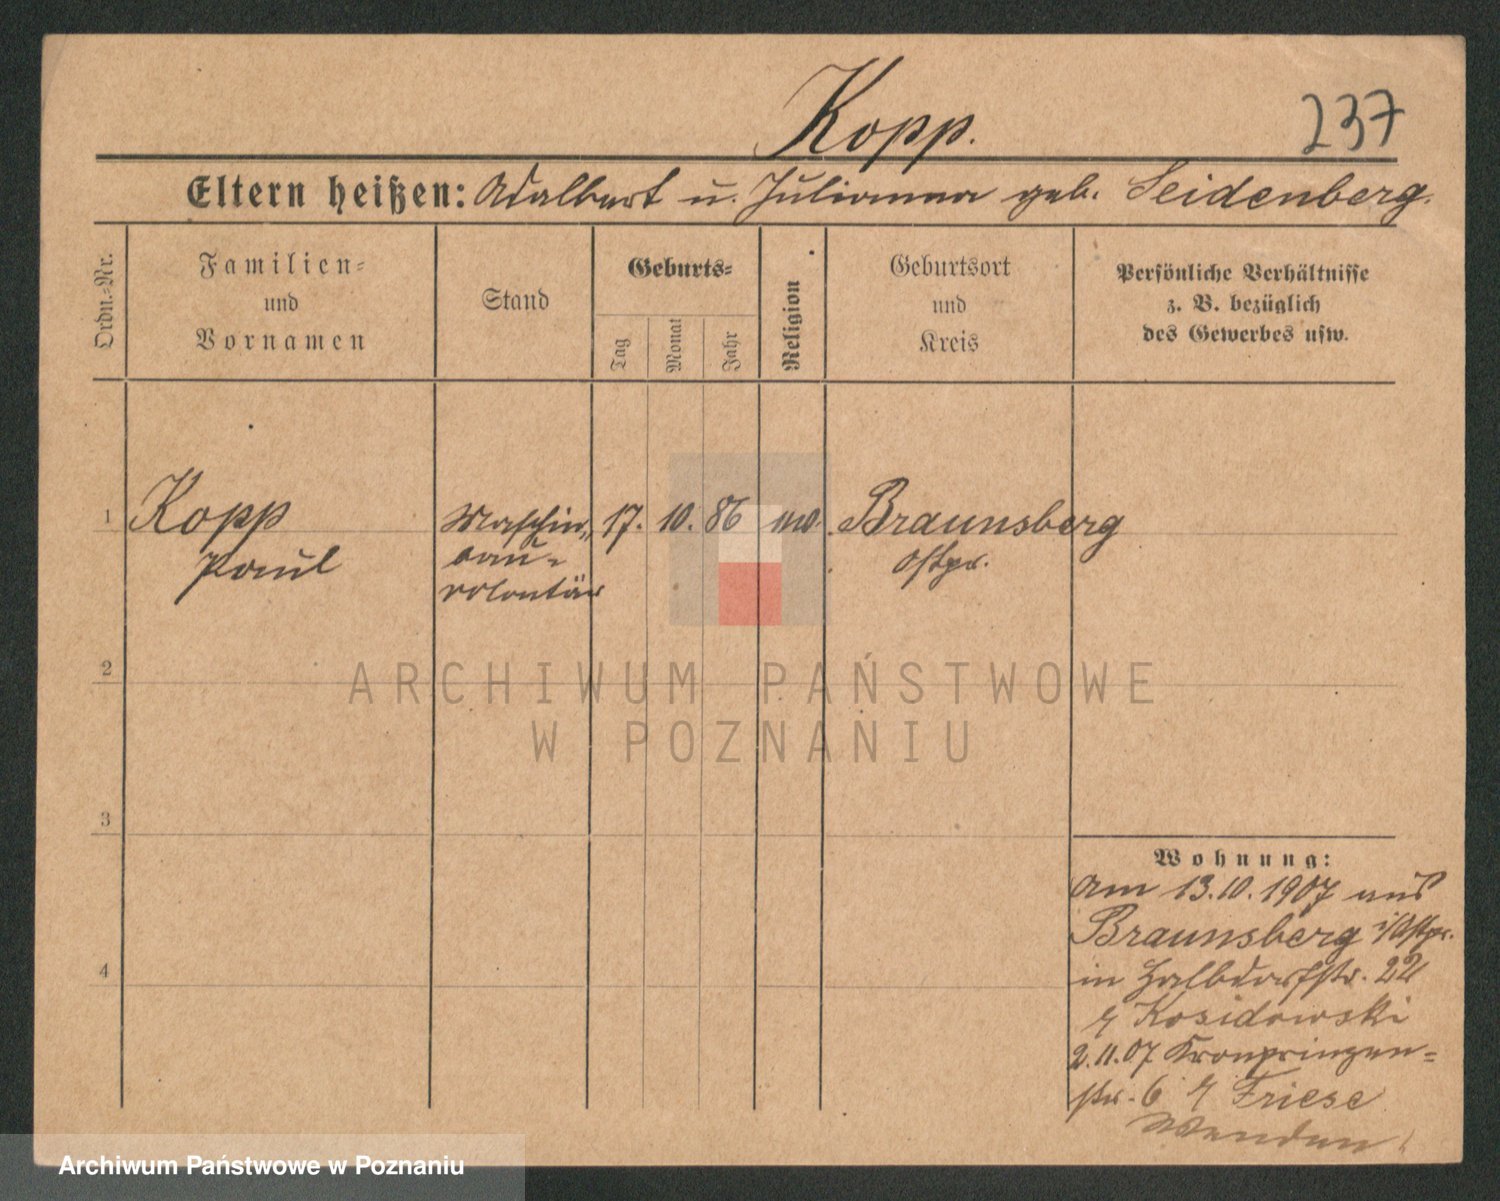 Kopp.
237
Eltern heißen: Adalbert u. Julianna geb. Seidenberg.
Ordn.-Nr.
Familien-
und
Vornamen
Stand
Geburts-
Tag
Monat
Jahr
Religion
Geburtsort
und
Kreis
Persönliche Verhältnisse
z. B. bezüglich
des Gewerbes usw.
1
Kopp
Paul
Maschin„
bau-
volontär
17. 10. 86
Braunsberg
Ostpr.
2
ARCHIWUM PAŃSTWOWE
W POZNANIU
3
4
Wohnung:
am 13.10.1907 aus
Braunsberg i/Ostpr.
in Halbdorfstr. 22
Kosidowski
2.11.07 Kronprinzen-
str. 6 Friese
Archiwum Państwowe w Poznaniu